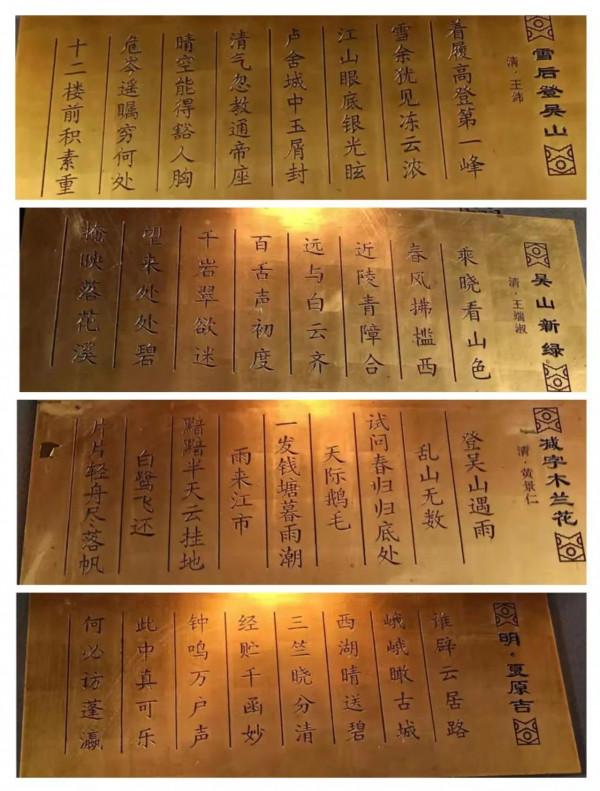 雪后登吴山
清·王
着履高登第一峰
雪余犹见冻云浓
江山眼底银光眩
卢舍城中玉屑封
清气忽教通帝座
晴空能得豁人胸
危岑遥瞩穷何处
十二楼前积素重
吴山新绿
清·王端淑
乘晓看山色
春风拂槛西
近陵青障合
远与白云齐
百舌声初度
千岩翠欲迷
望来处处碧
掩映落花溪
减字木兰花
清 黄景仁
登吴山遇雨
乱山无数
试问春归归底处
天际鹅毛
一发钱塘暮雨潮
雨来江市
黯黯半天云挂地
白鹭飞还
片片轻舟尽落帆
明·夏原吉
谁辟云居路
峨峨瞰古城
西湖晴送碧
三竺晓分清
经贮千函妙
钟鸣万户声
此中真可乐
何必访蓬瀛